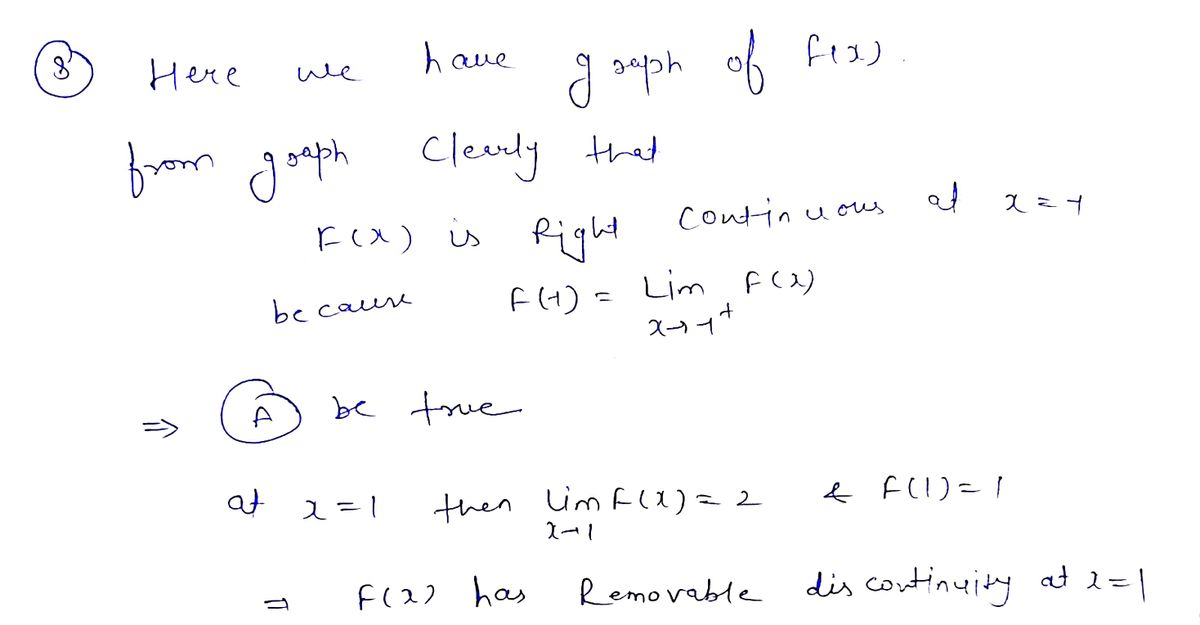 8 Here we have graph of f(x).
from graph Clearly that
F(x) is Right Continuous at x = -1
because F(-1) = Lim F(x)
x→-1⁺
⇒ A be true
at x = 1 then lim F(x) = 2 & F(1) = 1
x→1
⇒ F(x) has Removable discontinuity at x = 1